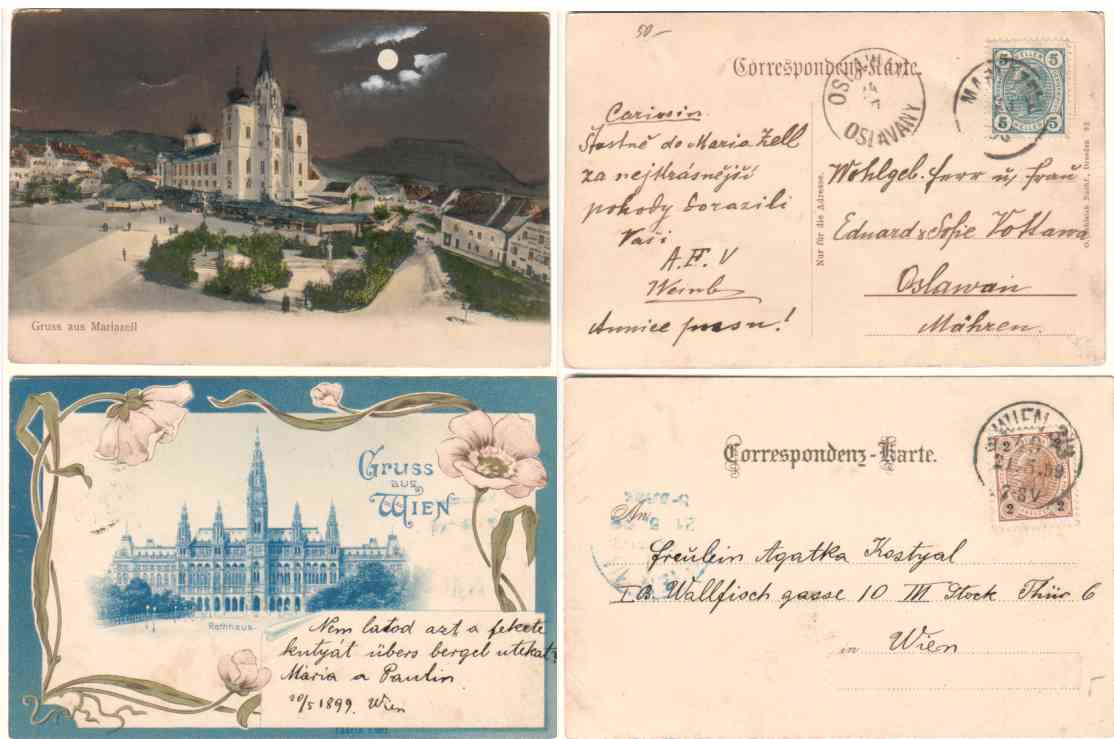 Gruss aus Mariazell
50-
Correspondenz-Karte.
OSLAWAN
OSLAVANY
5 5
5 5
HELLER
Carissin.
Šťastně do Maria Zell
za nejkrásnější
pohody dorazili
Vaši
A. F. V
Annice pusu!
Nur für die Adresse.
Wohlgeb. Herr u. Frau
Eduard & Sofie Vottawa
Oslawan
Mähren.
Dresden
Gruss
aus
Wien
Rathhaus
Nem látod azt a fekete
kutyát übers bergel
Maria a Paulin
20/5 1899. Wien
Correspondenz-Karte.
WIEN
2 2
2 2
An
Freulein Agatka Kostyal
I B. Wallfisch gasse 10 III Stock Thür 6
in Wien